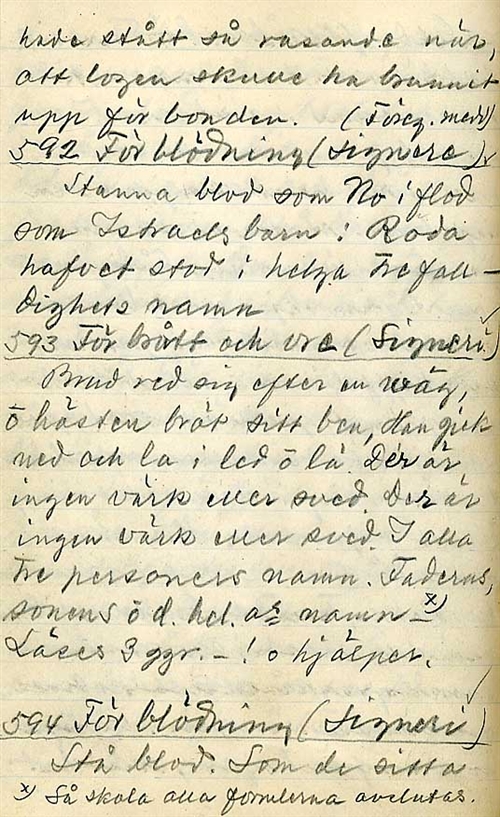 hade stått så rasande när,
att logen skulle ha brunnit
upp för bonden. (Föreg. medd)
592 För blödning (Signere)
Stanna blod som No i flod
som Israels barn i Röda
hafvet stod i helga trefall-
dighets namn
593 För brått och vre (Signeri)
Brud red sig efter en wäg,
ō hästen bröt sitt ben, Han gick
ned och la i led ō la. Der är
ingen värk eller sved. Der är
ingen värk eller sved. I alla
tre personers namn. Faderns,
sonens ō d. hel. as namn – x)
Läses 3 ggr. – ! o hjälper.
594 För blödning (Signeri)
Stå blod. Som de sitta
x) Så skola alla formlerna avslutas.